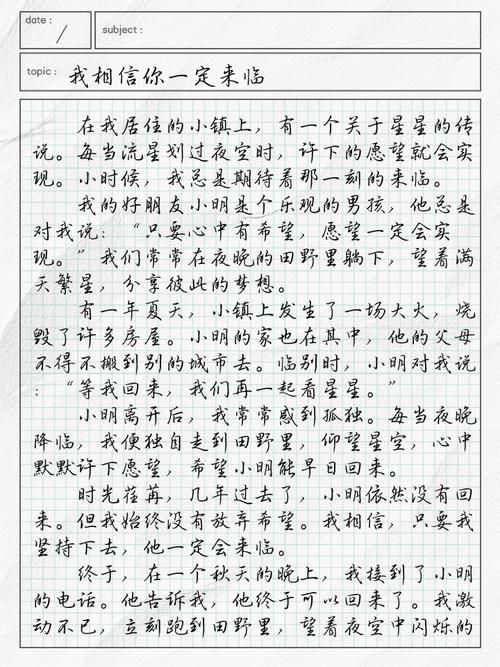 date：
subject：
topic： 我相信你一定来临
在我居住的小镇上，有一个关于星星的传
说。每当流星划过夜空时，许下的愿望就会实
现。小时候，我总是期待着那一刻的来临。
我的好朋友小明是个乐观的男孩，他总是
对我说：“只要心中有希望，愿望一定会实
现。”我们常常在夜晚的田野里躺下，望着满
天繁星，分享彼此的梦想。
有一年夏天，小镇上发生了一场大火，烧
毁了许多房屋。小明的家也在其中，他的父母
不得不搬到别的城市去。临别时，小明对我说
：“等我回来，我们再一起看星星。”
小明离开后，我常常感到孤独。每当夜晚
降临，我便独自走到田野里，仰望星空，心中
默默许下愿望，希望小明能早日回来。
时光荏苒，几年过去了，小明依然没有回
来。但我始终没有放弃希望。我相信，只要我
坚持下去，他一定会来临。
终于，在一个秋天的晚上，我接到了小明
的电话。他告诉我，他终于可以回来了。我激
动不已，立刻跑到田野里，望着夜空中闪烁的